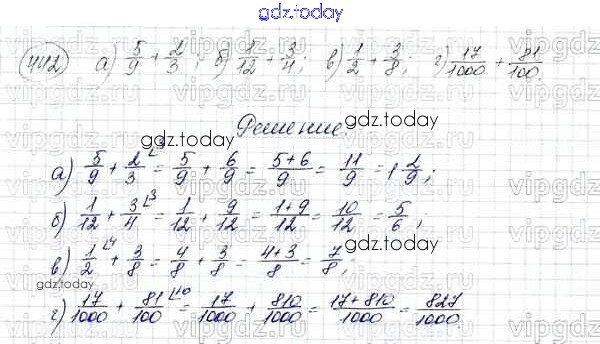 gdz.today
442 а) 5/9 + 2/3; б) 1/12 + 3/4; в) 1/2 + 3/8; г) 17/1000 + 81/100.
gdz.today
Решение.
gdz.today
а) 5/9 + 2/3 ⌊3 = 5/9 + 6/9 = (5+6)/9 = 11/9 = 1 2/9;
б) 1/12 + 3/4 ⌊3 = 1/12 + 9/12 = (1+9)/12 = 10/12 = 5/6;
в) 1/2 ⌊4 + 3/8 = 4/8 + 3/8 = (4+3)/8 = 7/8;
gdz.today
г) 17/1000 + 81/100 ⌊10 = 17/1000 + 810/1000 = (17+810)/1000 = 827/1000.
gdz.today